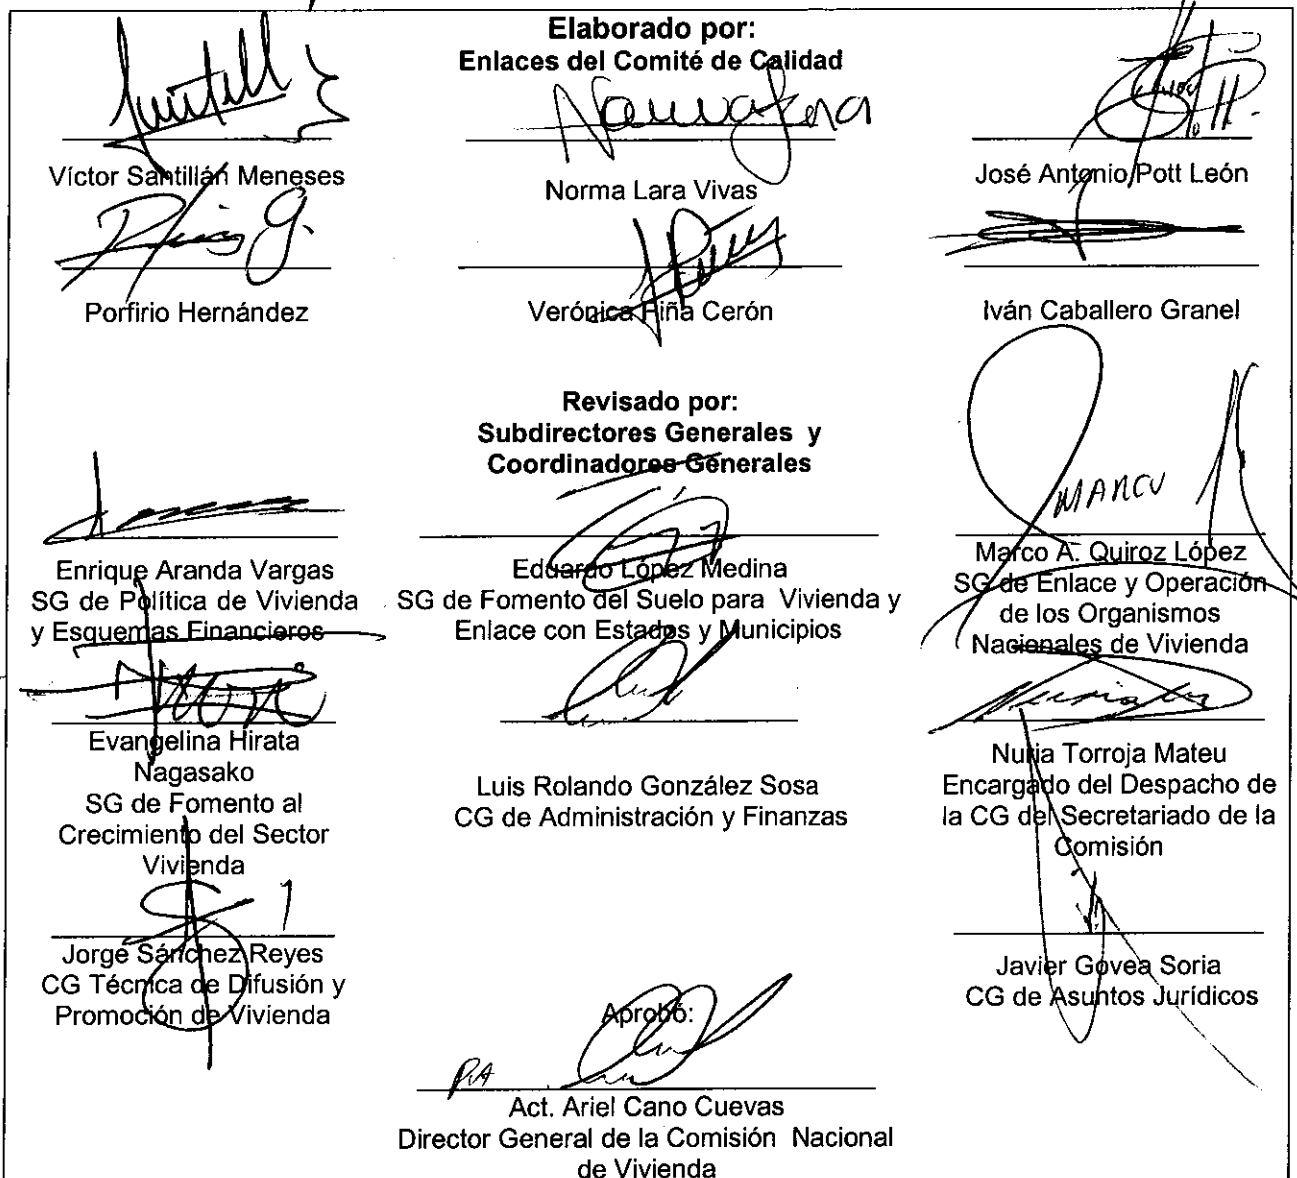 Elaborado por:
Enlaces del Comité de Calidad
Víctor Santillán Meneses
Norma Lara Vivas
José Antonio Pott León
Porfirio Hernández
Verónica Piña Cerón
Iván Caballero Granel
Revisado por:
Subdirectores Generales y
Coordinadores Generales
MARCO
Enrique Aranda Vargas
SG de Política de Vivienda
y Esquemas Financieros
Eduardo López Medina
SG de Fomento del Suelo para Vivienda y
Enlace con Estados y Municipios
Marco A. Quiroz López
SG de Enlace y Operación
de los Organismos
Nacionales de Vivienda
Evangelina Hirata
Nagasako
SG de Fomento al
Crecimiento del Sector
Vivienda
Luis Rolando González Sosa
CG de Administración y Finanzas
Nuria Torroja Mateu
Encargado del Despacho de
la CG del Secretariado de la
Comisión
Jorge Sánchez Reyes
CG Técnica de Difusión y
Promoción de Vivienda
Javier Govea Soria
CG de Asuntos Jurídicos
Aprobó:
Act. Ariel Cano Cuevas
Director General de la Comisión Nacional
de Vivienda